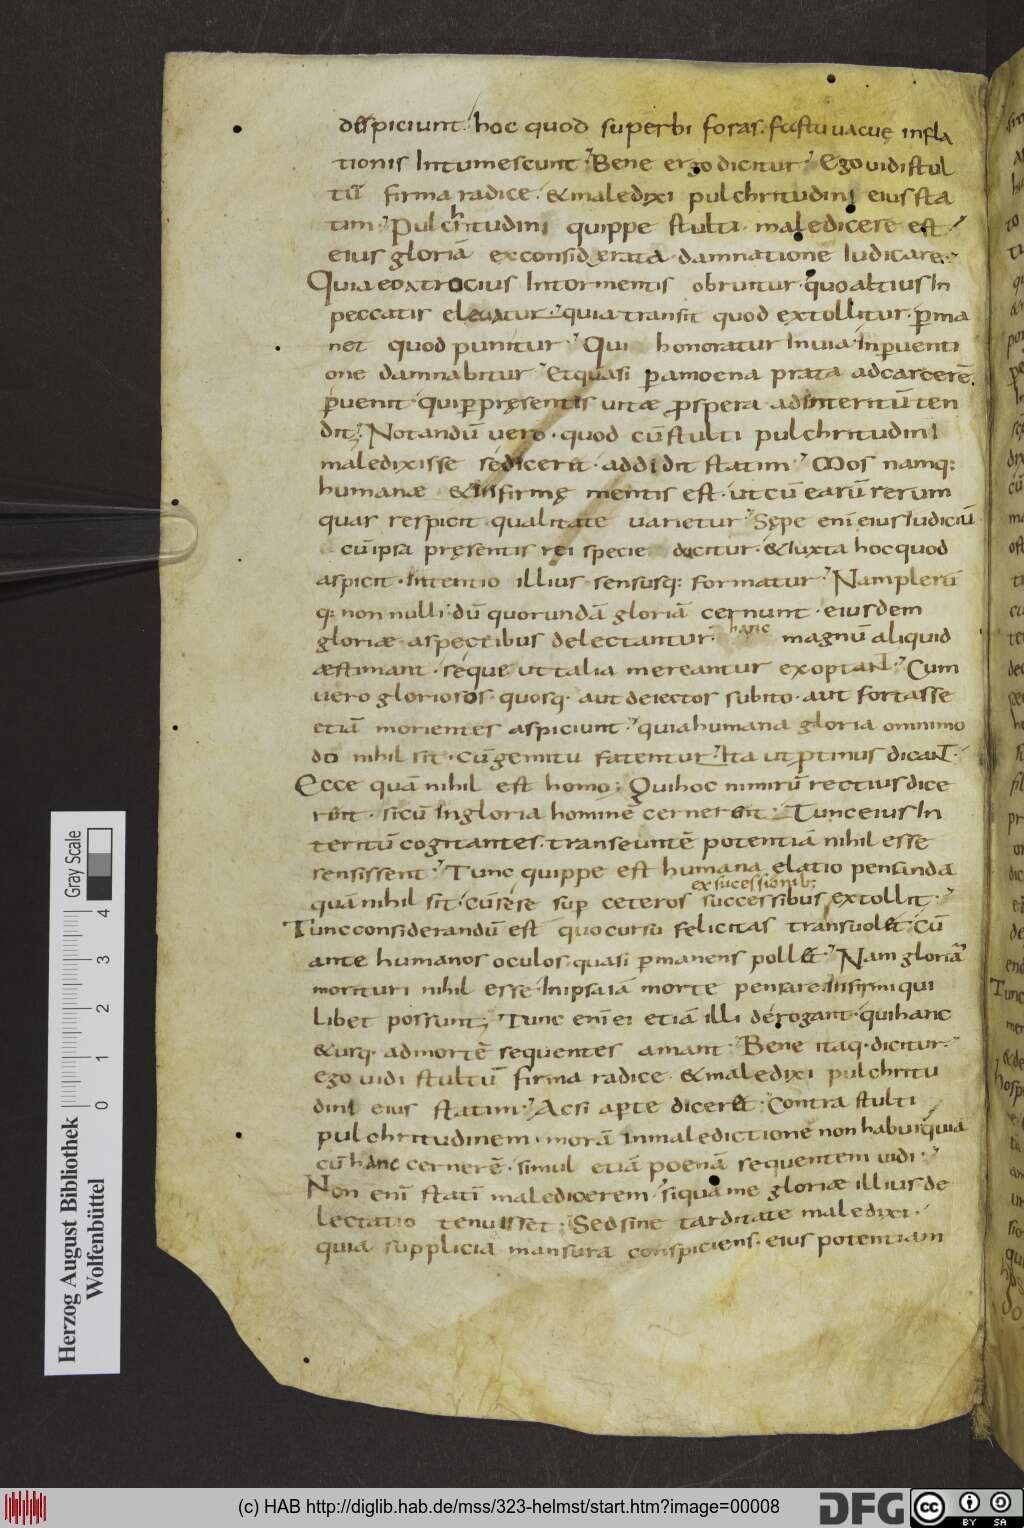 despiciunt. hoc quod superbi foras. fastu uacuę infla
tionis Intumescunt; Bene ergo dicitur; Ego uidi stul
tū firma radice. & maledixi pulchritudini eius sta
tim; Pulchritudini quippe stulti maledicere est;
eius gloriā ex considerata damnatione Iudicare;
Quia eo atrocius In tormentis obruitur. quo altius In
peccatis eleuatur; quia transit quod extollitur. p̄ma
net quod punitur; Qui honoratur In uia. In p̄uenti
one damnabitur; Et quasi p̄ amoena prata ad carcerē
p̄uenit. qui p̄ pręsentis uitæ prospera ad interitū ten
dit; Notandū uero. quod cū stulti pulchritudini
maledixisse se dicerit. addidit statim; Mos namq:
humanæ & infirmę mentis est. ut cū earū rerum
quas respicit qualitate uarietur; Sępe enī eius Iudiciū
cū ipsa pręsentis rei specie ducitur. & Iuxta hoc quod
aspicit. Intentio illius sensusq: formatur; Nam plerū
q: non nulli dū quorundā gloriā cernunt. eiusdem
gloriæ aspectibus delectantur. hanc magnū aliquid
æstimant. seque ut talia mereantur exoptant; Cum
uero gloriosos quosq. aut deiectos subito. aut fortasse
etiā morientes aspiciunt; quia humana gloria omnimo
do nihil sit. cū gemitu fatentur; Ita ut p̄tinus dicant.
Ecce quā nihil est homo; Qui hoc nimirū rectius dice
rent. si cū In gloria hominē cernerent; Tunc eius In
teritū cogitantes. transeuntē potentiā nihil esse
sensissent; Tunc quippe est humana elatio pensanda
ex sucessionib;
quā nihil sit. cū sese sup̄ ceteros successibus extollit;
Tunc considerandū est quo cursu felicitas transuolet. cū
ante humanos oculos quasi p̄manens pollet; Nam gloriā
morituri nihil esse In ipsa iā morte pensare. Infirmi qui
libet possunt; Tunc enī ei etiā illi derogant. qui hanc
& usq. ad mortē sequentes amant; Bene itaq. dicitur;
ego uidi stultū firma radice. & maledixi pulchritu
dini eius statim; Ac si aperte diceret; Contra stulti
pulchritudinem. morā In maledictione non habui quia
cū hanc cernerē. simul etiā poenā sequentem uidi;
Non enī statī maledicerem. si quā me gloriæ illius de
lectatio tenuisset; Sed sine tarditate maledixi.
quia supplicia mansura conspiciens. eius potentiam
Herzog August Bibliothek
Wolfenbüttel
0 1 2 3 4
Gray Scale
(c) HAB http://diglib.hab.de/mss/323-helmst/start.htm?image=00008
DFG
cc BY SA